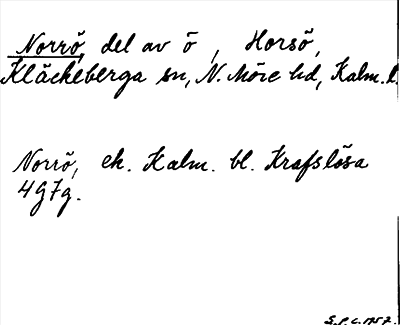 Norrö, del av ö, Horsö,
Kläckeberga sn, N. Möre hd, Kalm. l.
Norrö, ek. Kalm. bl. Krafslösa
4g7g.